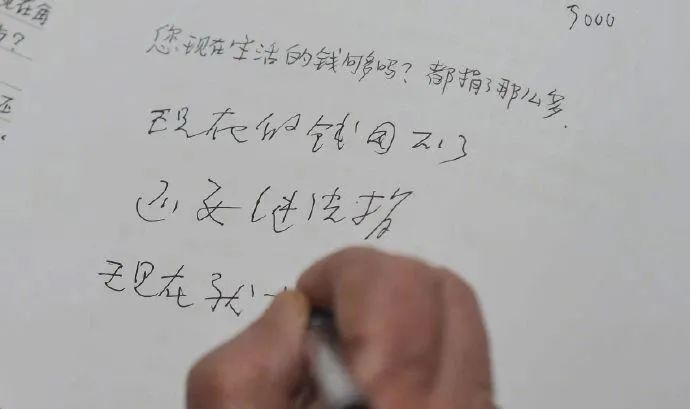 5000
现在再
?
您现在生活的钱够多吗？都捐了那么多.
还
现在的钱用不了
还要继续捐
现在我